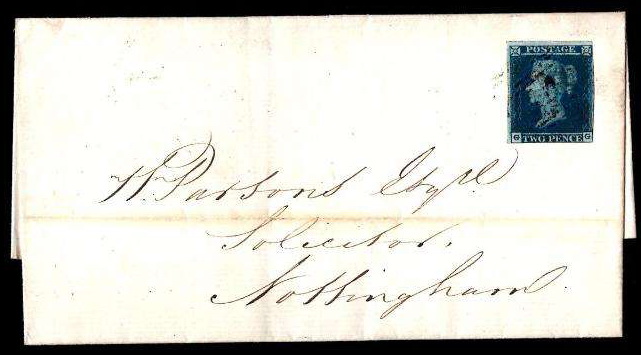 POSTAGE
G G
TWO PENCE
Wm Parsons Esqre
Solicitor,
Nottingham.